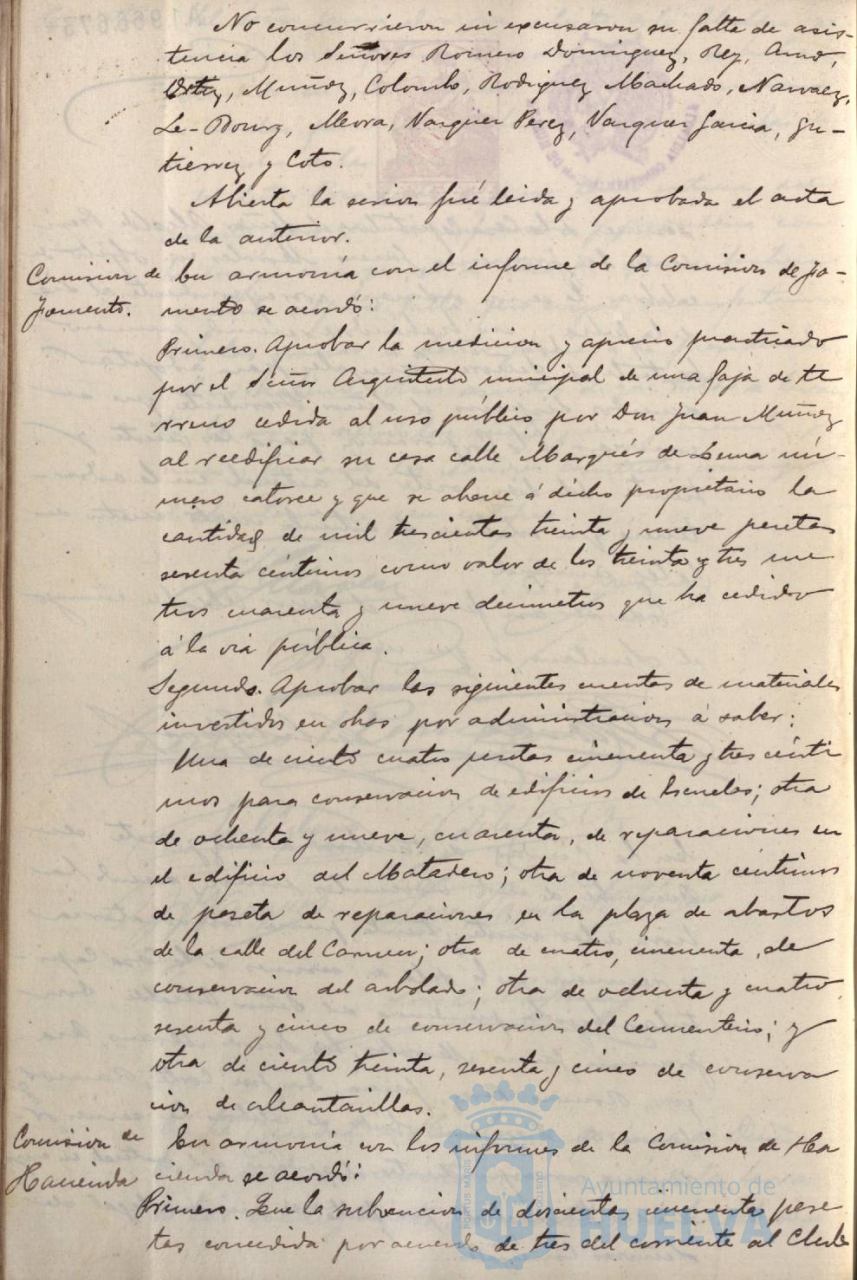 No concurrieron ni excusaron su falta de asis-
tencia los Señores Romero Dominguez, Rey,
Ortiz, Muñoz, Colombo, Rodriguez Machado, Narvaez,
Le-Bourg, Mora, Vazquez Perez, Vazquez Garcia, Gu-
tierrez y Coto.
Abierta la sesion fué leida y aprobada el acta
de la anterior.
Comision de
Fomento.
En armonía con el informe de la Comision de Fo-
mento se acordó:
Primero. Aprobar la medicion y aprecio practicado
por el Señor Arquitecto municipal de una faja de te
rreno cedida al uso público por Don Juan Muñoz
al reedificar su casa calle Marqués de Lema nú-
mero catorce y que se abone á dicho propietario la
cantidad de mil trescientas treinta y nueve pesetas
sesenta céntimos como valor de los treinta y tres me
tros cuarenta y nueve decimetros que ha cedido
á la via pública.
Segundo. Aprobar las siguientes cuentas de materiales
invertidos en obras por administracion á saber:
Una de ciento cuatro pesetas cincuenta y tres cénti
mos para conservacion de edificios de Escuelas; otra
de ochenta y nueve, cuarenta, de reparaciones en
el edificio del Matadero; otra de noventa céntimos
de peseta de reparaciones en la plaza de abastos
de la calle del Carmen; otra de cuatro, cincuenta, de
conservacion del arbolado; otra de ochenta y cuatro
sesenta y cinco de conservacion del Cementerio; y
otra de ciento treinta, sesenta y cinco de conserva
cion de alcantarillas.
Comision de
Hacienda
En armonía con los informes de la Comision de Ha
cienda se acordó:
Primero. Que la subvencion de doscientas cincuenta pese
tas concedida por acuerdo de tres del corriente al Club
Ayuntamiento de
HUELVA